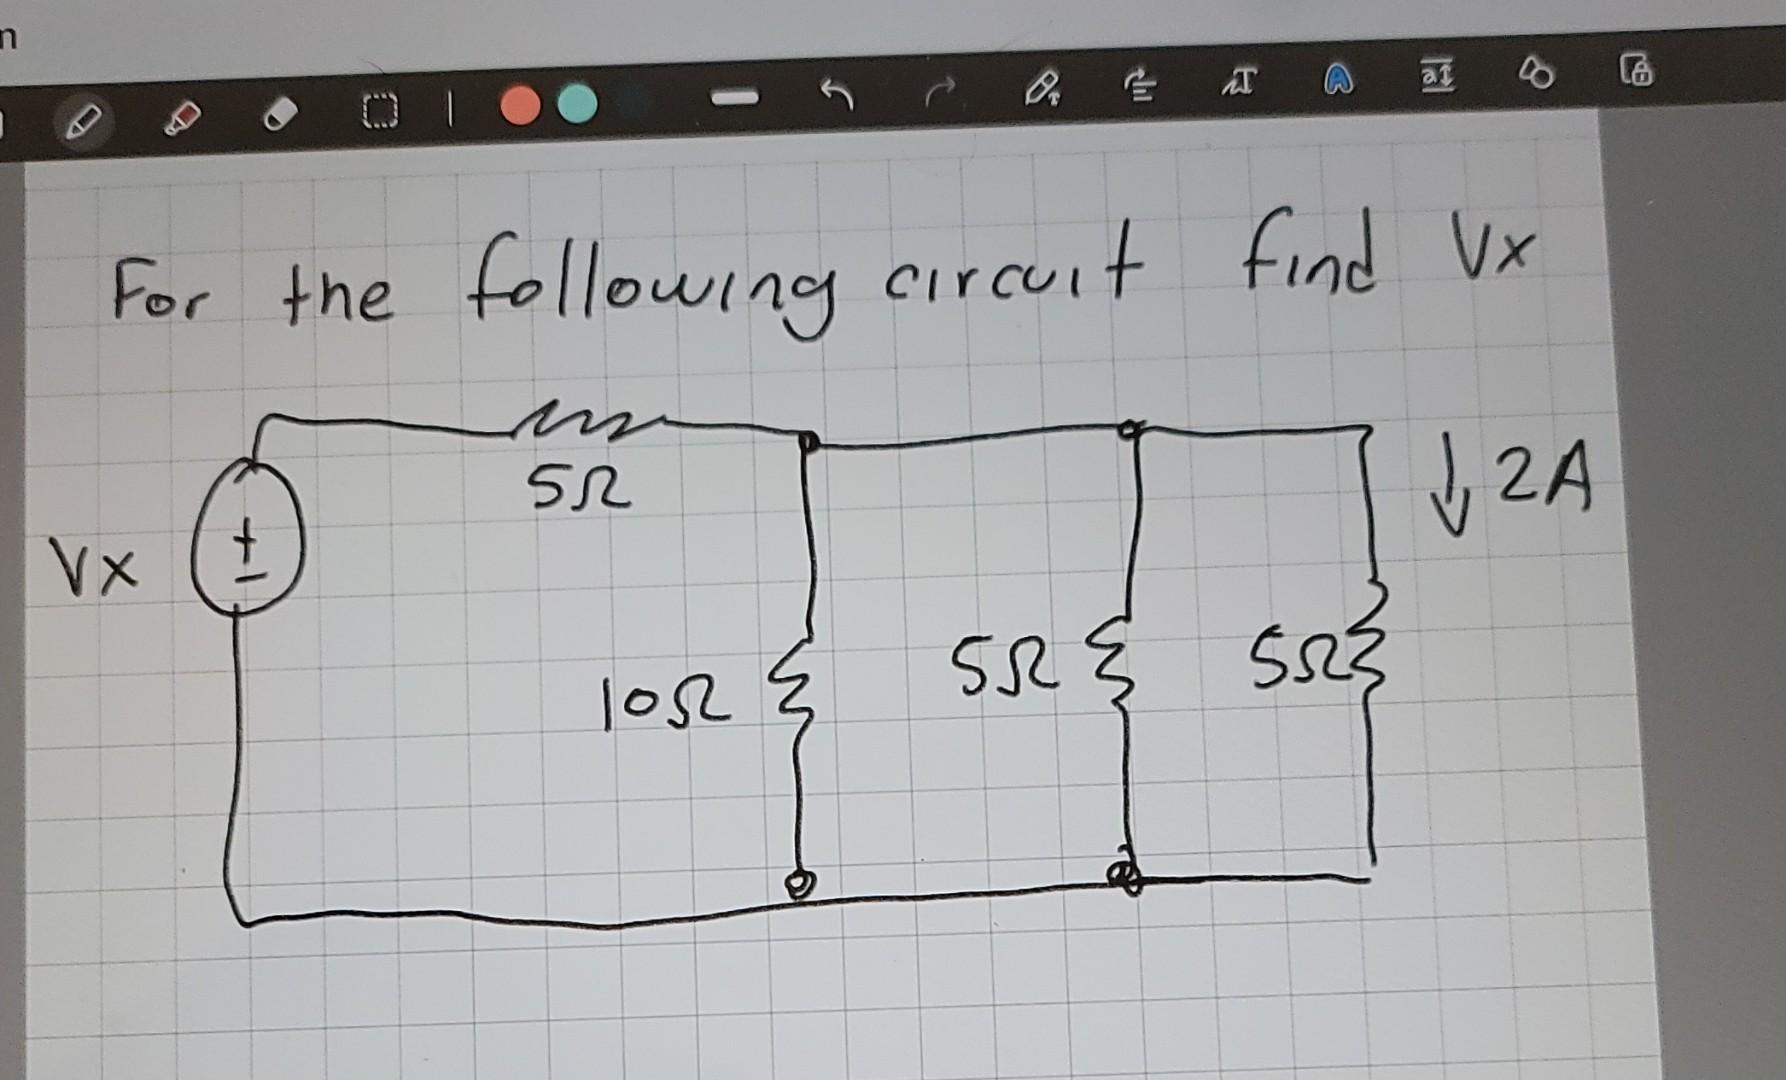 n
For the following circuit find Vx
5Ω
↓ 2A
Vx
+
−
10Ω
5Ω
5Ω